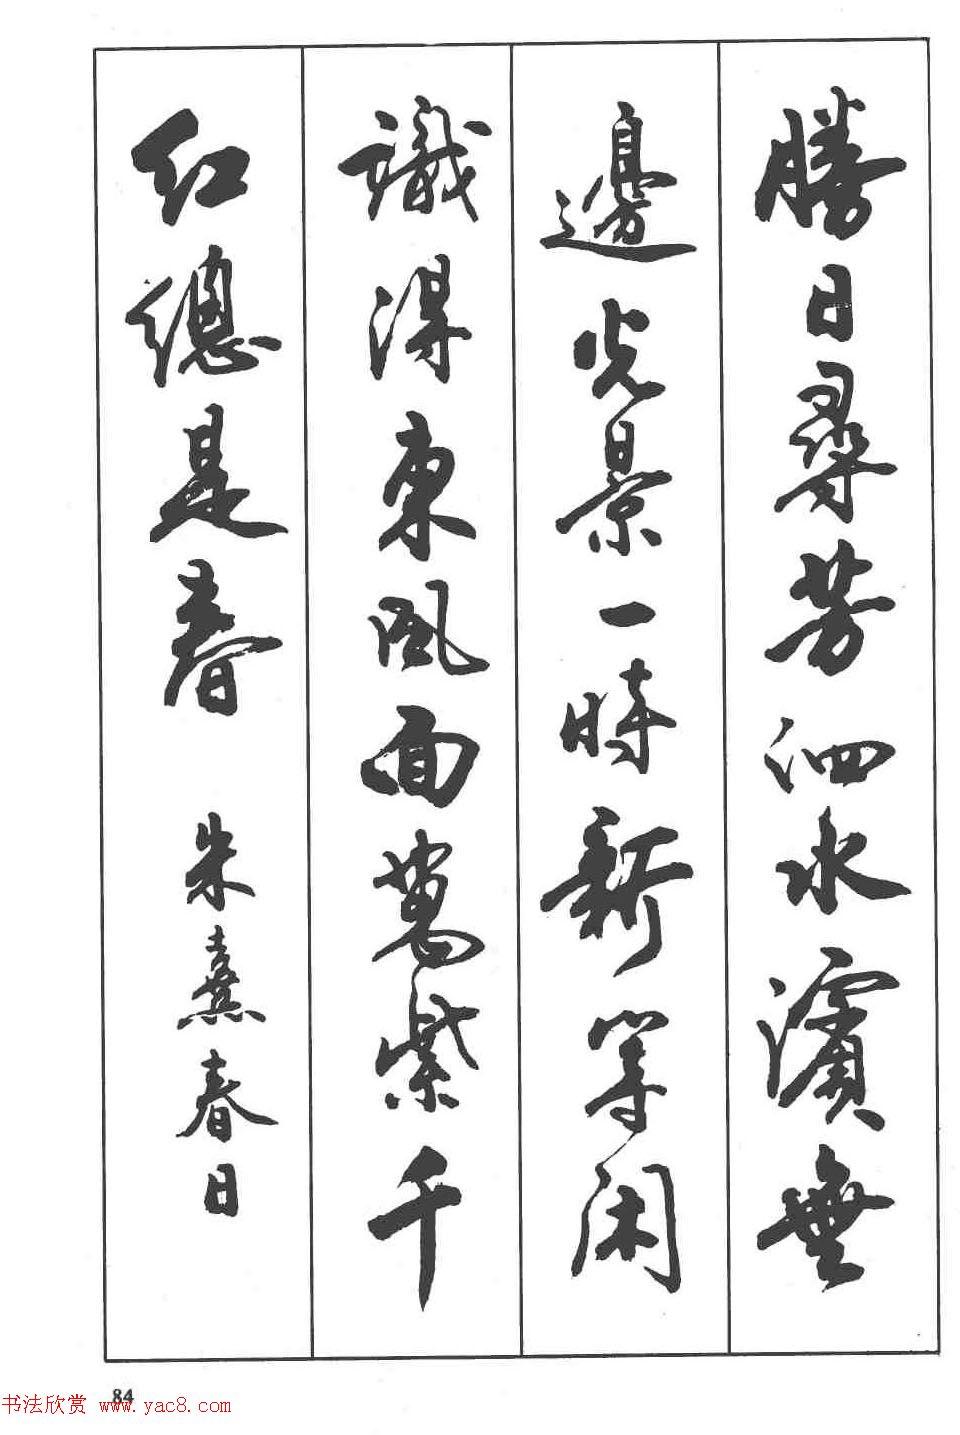 勝日尋芳泗水濱無
邊光景一時新等闲
識得東風面萬紫千
紅總是春 朱熹春日
84
书法欣赏 www.yac8.com